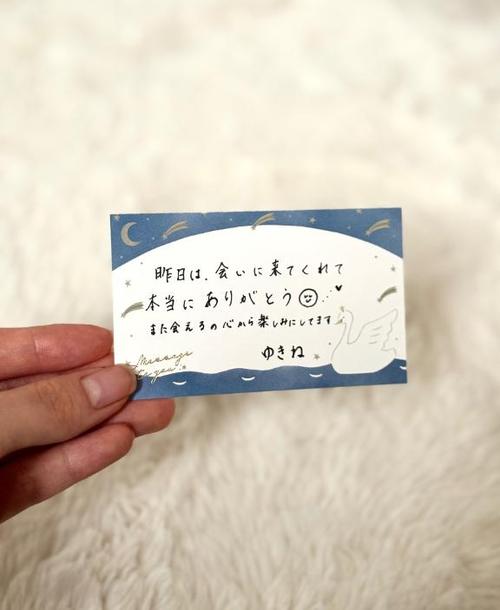 昨日は、会いに来てくれて
本当にありがとう
また会えるの心から楽しみにしてます
ゆきね
Message
to you